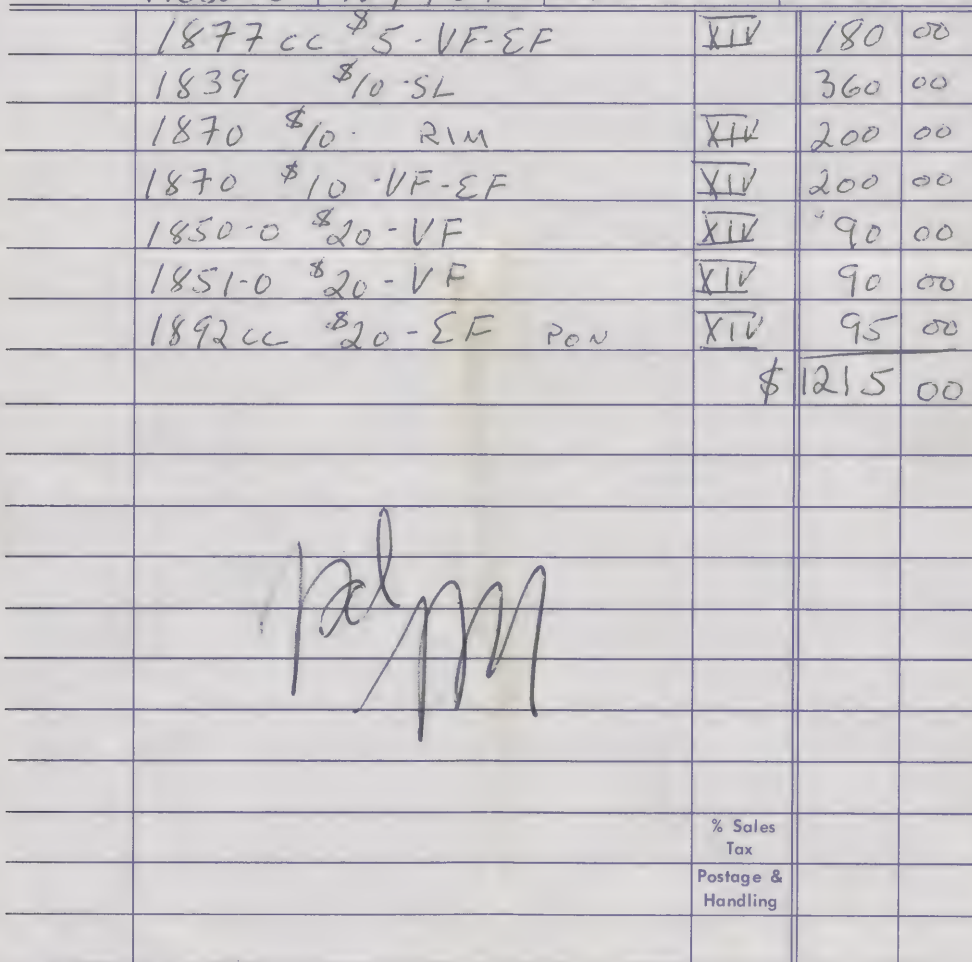 1877 cc $5 - VF-EF XIV 180 00
1839 $10 - SL 360 00
1870 $10 - RIM XIV 200 00
1870 $10 - VF-EF XIV 200 00
1850-0 $20 - VF XIV 90 00
1851-0 $20 - VF XIV 90 00
1892 cc $20 - EF PON XIV 95 00
$ 1215 00
pd
% Sales
Tax
Postage &
Handling